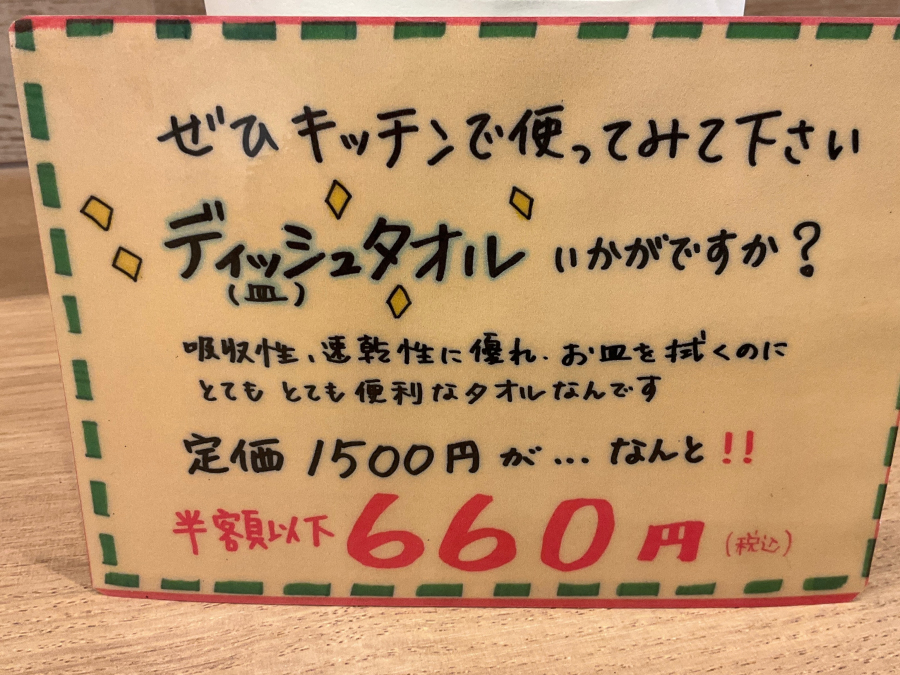 ぜひキッチンで使ってみて下さい
ディッシュタオル いかがですか？
(皿)
吸収性、速乾性に優れ、お皿を拭くのに
とてもとても便利なタオルなんです
定価 1500円が…なんと!!
半額以下660円(税込)